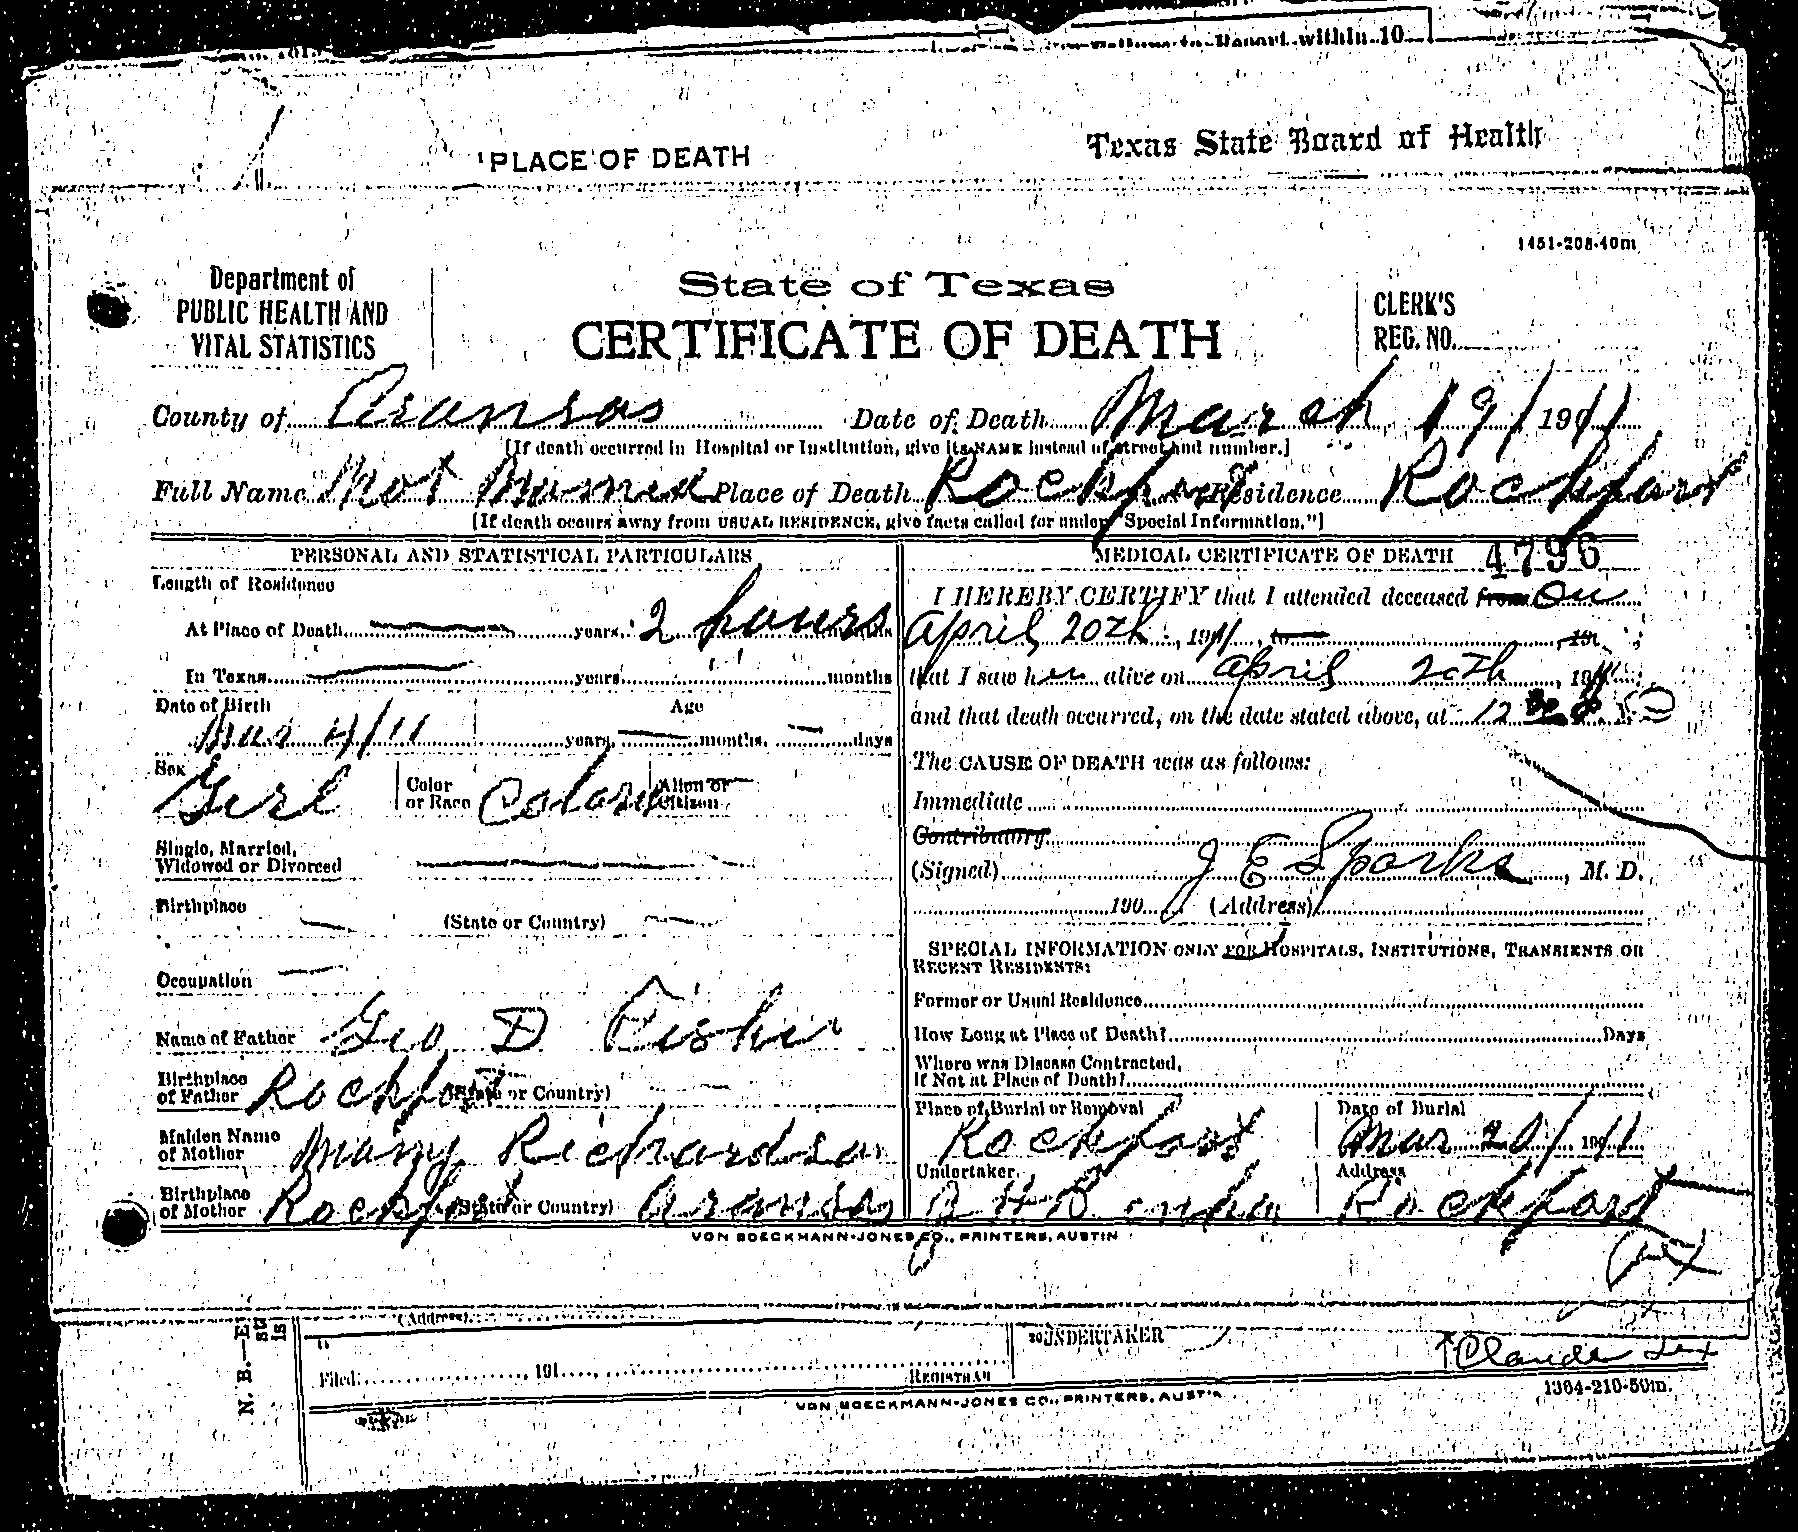 within 10
PLACE OF DEATH
Texas State Board of Health
1451-208-40m
Department of
PUBLIC HEALTH AND
VITAL STATISTICS
State of Texas
CERTIFICATE OF DEATH
CLERK'S
REG. NO.
County of Aransas Date of Death March 19/1911
[If death occurred in Hospital or Institution, give its NAME instead of street and number.]
Full Name Not Named Place of Death Rockport Residence Rockport
[If death occurs away from USUAL RESIDENCE, give facts called for under "Special Information."]
PERSONAL AND STATISTICAL PARTICULARS
Length of Residence
At Place of Death years 2 hours months
In Texas years months
Date of Birth Age
Mar 4/11 years, months, days
Sex Girl Color or Race Colored Alien or Citizen
Single, Married,
Widowed or Divorced
Birthplace (State or Country)
Occupation
Name of Father Geo D
Birthplace
of Father Rockport (State or Country)
Maiden Name
of Mother Mary Richardson
Birthplace
of Mother Rockport (State or Country) Aransas
MEDICAL CERTIFICATE OF DEATH 4796
I HEREBY CERTIFY that I attended deceased from On
April 20th, 1911, to 190
that I saw her alive on April 20th 1911
and that death occurred, on the date stated above, at 12
The CAUSE OF DEATH was as follows:
Immediate
Contributory
(Signed) J E Sparks, M. D.
190 (Address)
SPECIAL INFORMATION ONLY FOR HOSPITALS, INSTITUTIONS, TRANSIENTS OR
RECENT RESIDENTS:
Former or Usual Residence
How Long at Place of Death? Days
Where was Disease Contracted,
If Not at Place of Death?
Place of Burial or Removal Date of Burial
Rockport Mar 20/1911
Undertaker Address
Rockport
VON BOECKMANN-JONES CO., PRINTERS, AUSTIN
(Address)
N. B.—E
20 UNDERTAKER
Filed 191
REGISTRAR
Claude Tex
VON BOECKMANN-JONES CO., PRINTERS, AUSTIN
1364-210-50m.